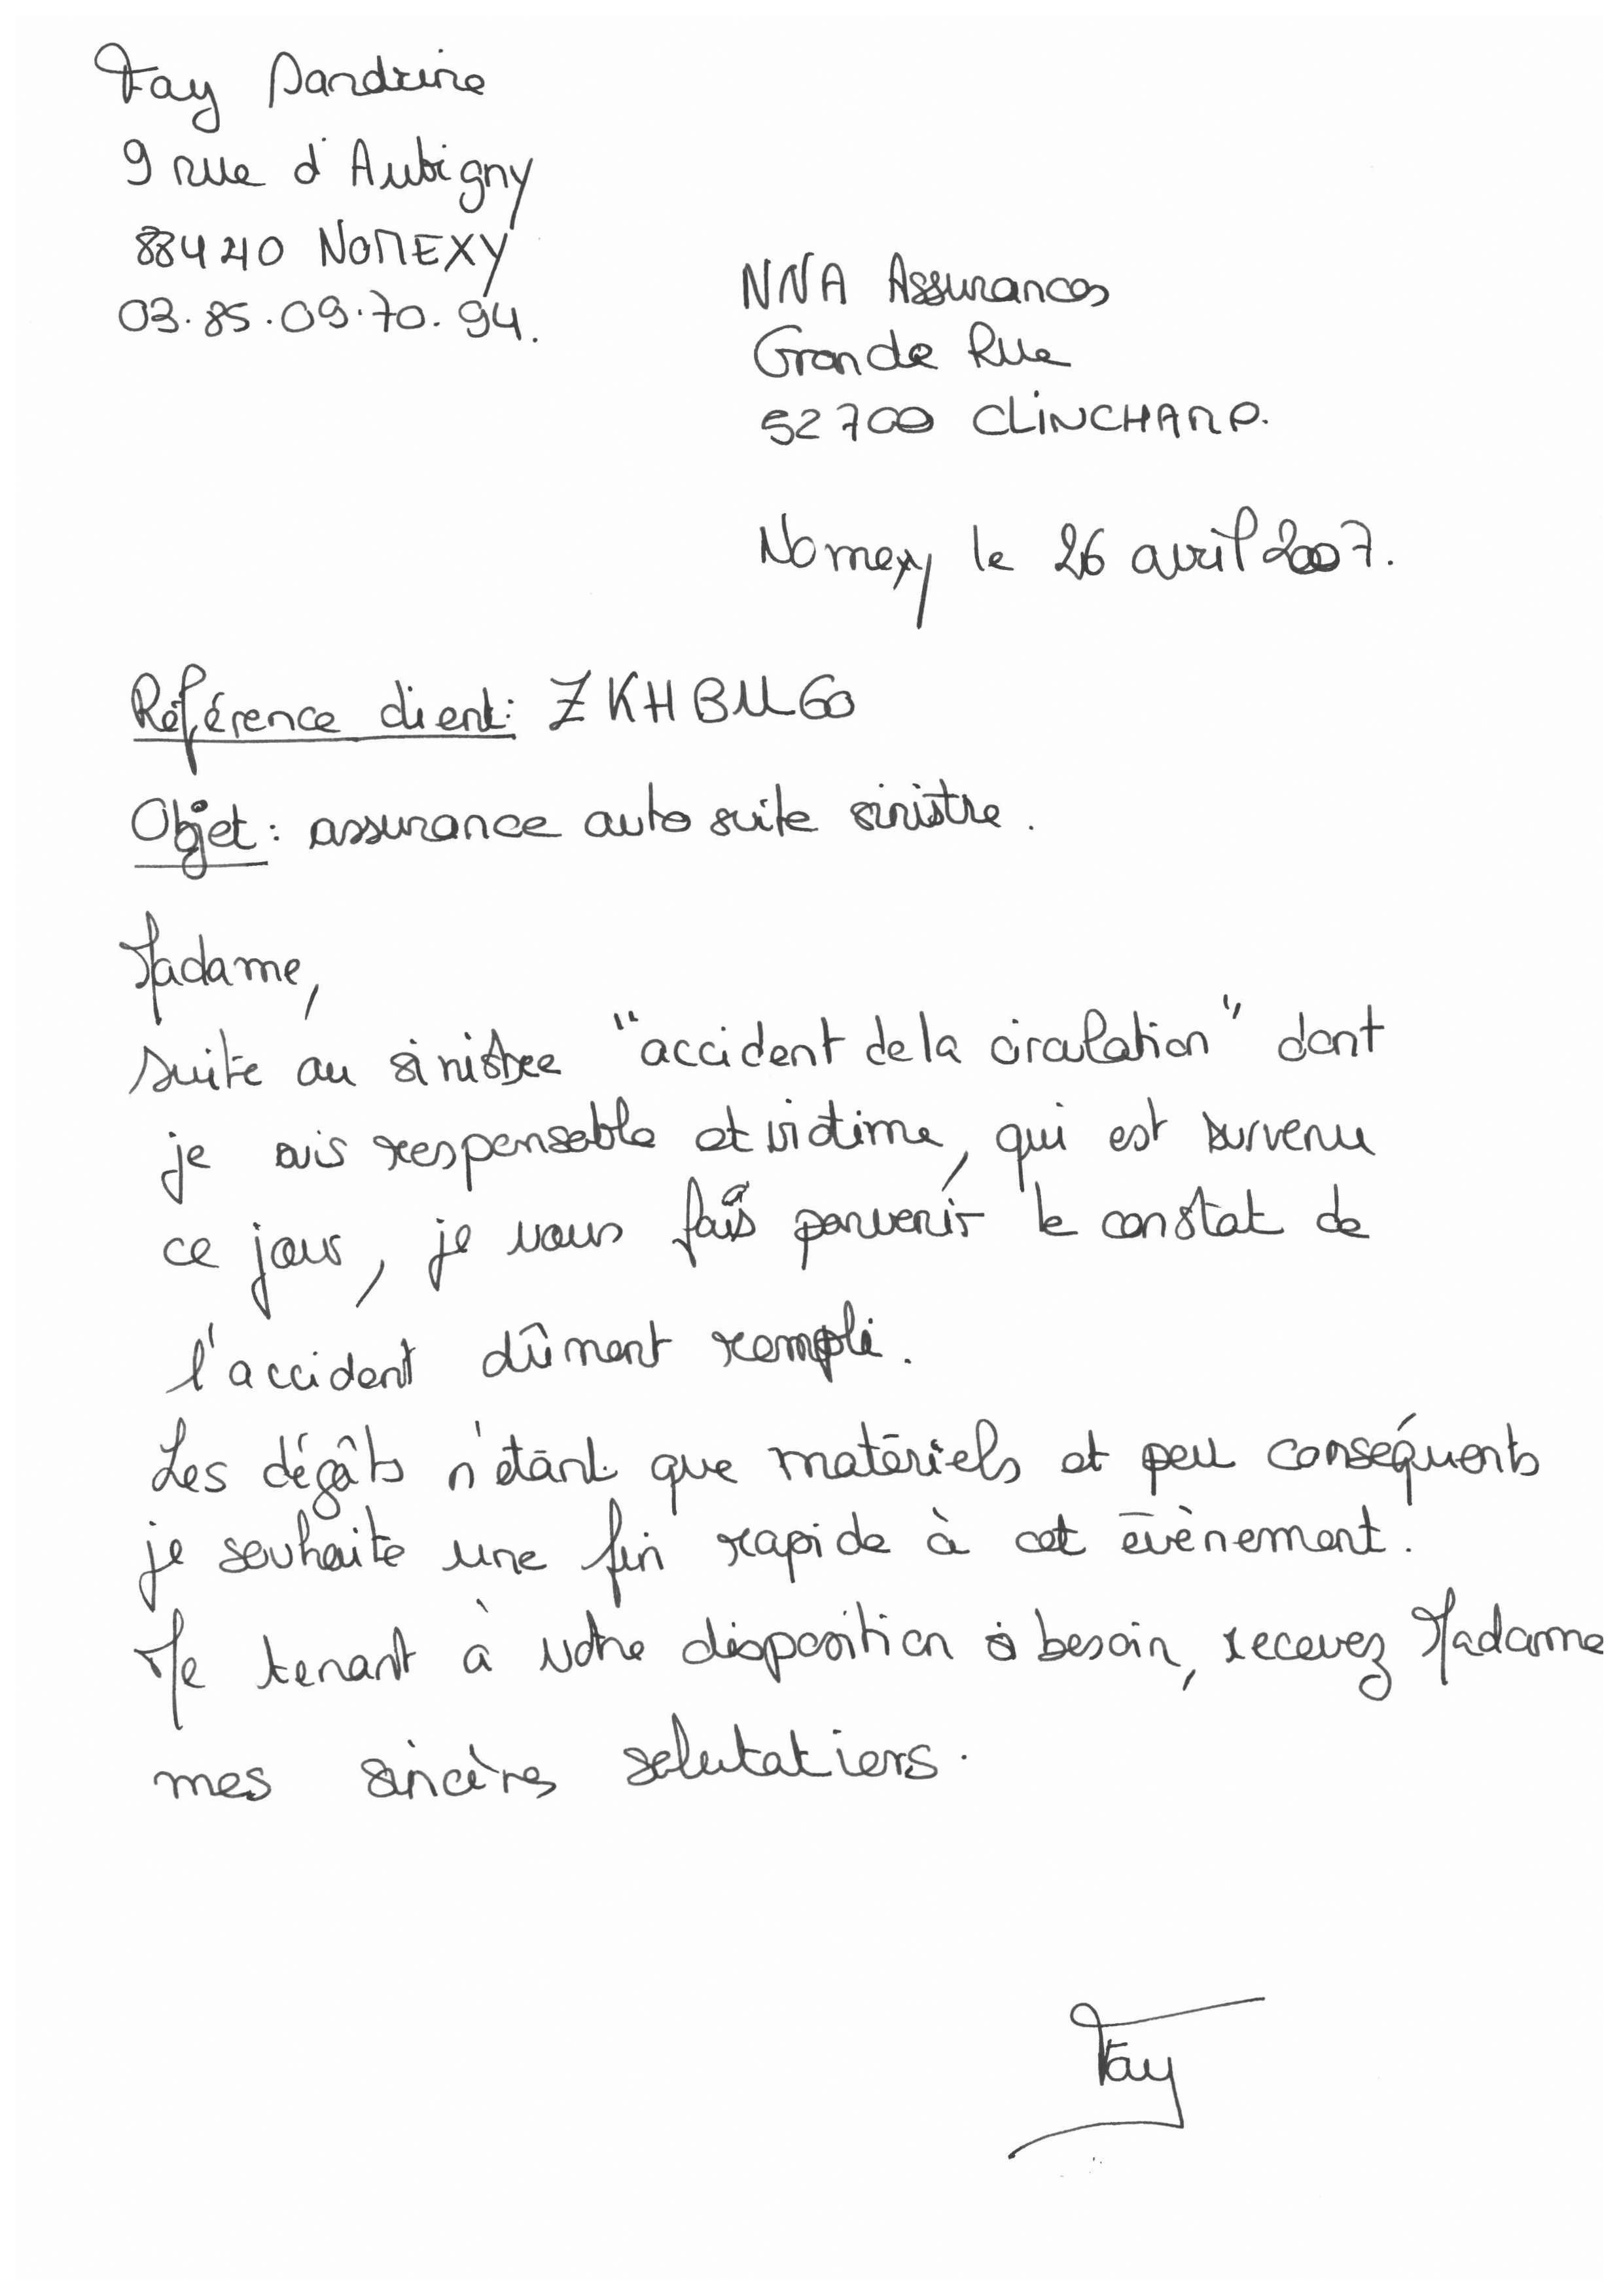 Fay Sandrine
9 rue d'Aubigny
88440 NOMEXY
03.85.09.70.94.
NNA Assurances
Grande Rue
52700 CLINCHAMP.
Nomexy le 26 avril 2007.
Référence client: ZKHBU60
Objet: assurance auto suite sinistre.
Madame,
suite au sinistre "accident de la circulation" dont
je suis responsable et victime, qui est survenu
ce jour, je vous fais parvenir le constat de
l'accident dûment rempli.
Les dégâts n'étant que matériels et peu conséquents
je souhaite une fin rapide à cet évènement.
Me tenant à votre disposition si besoin, recevez Madame
mes sincères salutations.
Fay